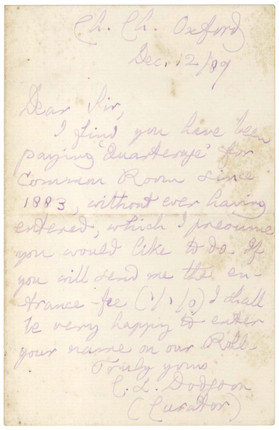 Ch. Ch. Oxford
Dec. 12/89
Dear Sir,
I find you have been
paying 'Quarterage' for
Common Room since
1883, without ever having
entered, which I presume
you would like to do. If
you will send me the en-
trance-fee (1/1/0) I shall
be very happy to enter
your name on our Roll.
Truly yours
C. L. Dodgson
(Curator)